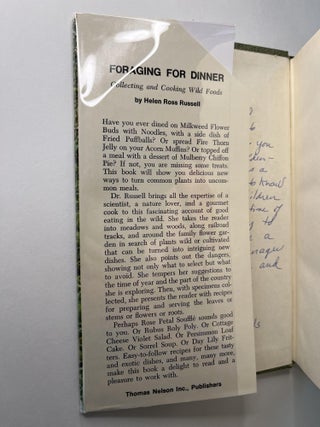 FORAGING FOR DINNER
Collecting and Cooking Wild Foods
by Helen Ross Russell
Have you ever dined on Milkweed Flower
Buds with Noodles, with a side dish of
Fried Puffballs? Or spread Fire Thorn
Jelly on your Acorn Muffins? Or topped off
a meal with a dessert of Mulberry Chiffon
Pie? If not, you are missing some treats.
This book will show you delicious new
ways to turn common plants into uncom-
mon meals.
Dr. Russell brings all the expertise of a
scientist, a nature lover, and a gourmet
cook to this fascinating account of good
eating in the wild. She takes the reader
into meadows and woods, along railroad
tracks, and around the family flower gar-
den in search of plants wild or cultivated
that can be turned into intriguing new
dishes. She also points out the dangers,
showing not only what to select but what
to avoid. She tempers her suggestions to
the time of year and the part of the country
she is exploring. Then, with specimens col-
lected, she presents the reader with recipes
for preparing and serving the leaves or
stems or flowers or roots.
Perhaps Rose Petal Soufflé sounds good
to you. Or Rubus Roly Poly. Or Cottage
Cheese Violet Salad. Or Persimmon Loaf
Cake. Or Sorrel Soup. Or Day Lily Frit-
ters. Easy-to-follow recipes for these tasty
and exotic dishes, and many, many more,
make this book a delight to read and a
pleasure to work with.
Thomas Nelson Inc., Publishers
to
you
a
to know
time of
to
a
and